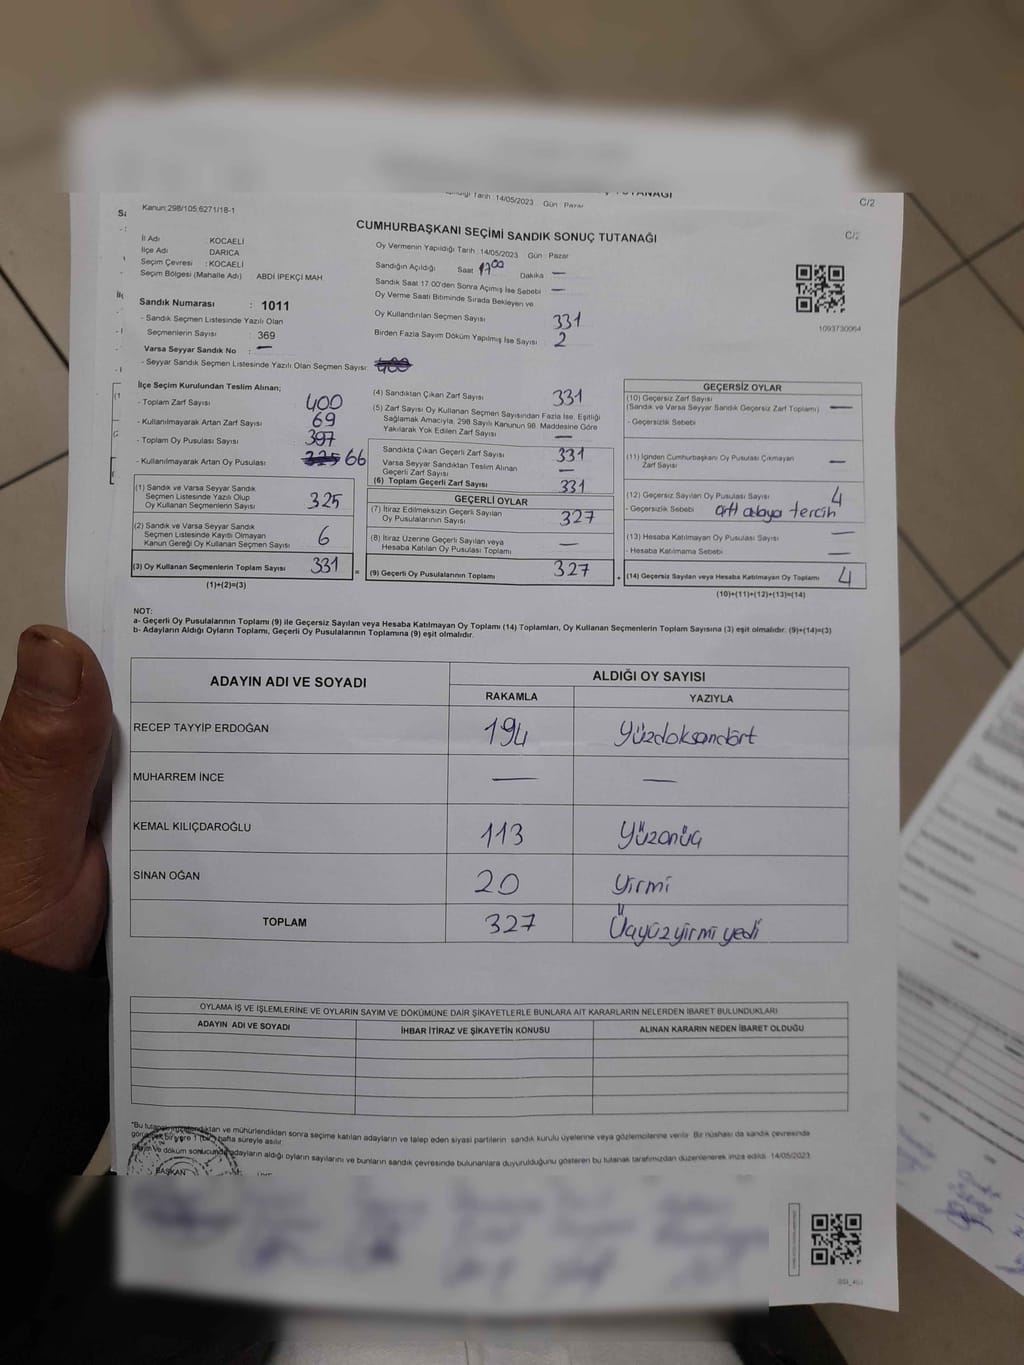 Tarih : 14/05/2023 Gün : Pazar
C/2
Kanun:298/105;6271/18-1
CUMHURBAŞKANI SEÇİMİ SANDIK SONUÇ TUTANAĞI
C/2
İl Adı : KOCAELİ
İlçe Adı : DARICA
Seçim Çevresi : KOCAELİ
Seçim Bölgesi (Mahalle Adı) ABDİ İPEKÇİ MAH.
Oy Vermenin Yapıldığı Tarih : 14/05/2023 Gün : Pazar
Sandığın Açıldığı Saat 17 00 Dakika —
Sandık Saat 17.00'den Sonra Açılmış İse Sebebi —
Oy Verme Saati Bitiminde Sırada Bekleyen ve
Oy Kullandırılan Seçmen Sayısı 331
Birden Fazla Sayım Döküm Yapılmış İse Sayısı : 2
1093730064
Sandık Numarası : 1011
- Sandık Seçmen Listesinde Yazılı Olan
Seçmenlerin Sayısı : 369
Varsa Seyyar Sandık No : —
- Seyyar Sandık Seçmen Listesinde Yazılı Olan Seçmen Sayısı : 400
İlçe Seçim Kurulundan Teslim Alınan;
- Toplam Zarf Sayısı 400
- Kullanılmayarak Artan Zarf Sayısı 69
- Toplam Oy Pusulası Sayısı 397
- Kullanılmayarak Artan Oy Pusulası 325 66
(1) Sandık ve Varsa Seyyar Sandık
Seçmen Listesinde Yazılı Olup
Oy Kullanan Seçmenlerin Sayısı 325
(2) Sandık ve Varsa Seyyar Sandık
Seçmen Listesinde Kayıtlı Olmayan
Kanun Gereği Oy Kullanan Seçmen Sayısı 6
(3) Oy Kullanan Seçmenlerin Toplam Sayısı 331
(1)+(2)=(3)
(4) Sandıktan Çıkan Zarf Sayısı 331
(5) Zarf Sayısı Oy Kullanan Seçmen Sayısından Fazla İse, Eşitliği
Sağlamak Amacıyla, 298 Sayılı Kanunun 98. Maddesine Göre
Yakılarak Yok Edilen Zarf Sayısı —
Sandıkta Çıkan Geçerli Zarf Sayısı 331
Varsa Seyyar Sandıktan Teslim Alınan
Geçerli Zarf Sayısı —
(6) Toplam Geçerli Zarf Sayısı 331
GEÇERLİ OYLAR
(7) İtiraz Edilmeksizin Geçerli Sayılan
Oy Pusulalarının Sayısı 327
(8) İtiraz Üzerine Geçerli Sayılan veya
Hesaba Katılan Oy Pusulası Toplamı —
= (9) Geçerli Oy Pusulalarının Toplamı 327
GEÇERSİZ OYLAR
(10) Geçersiz Zarf Sayısı
(Sandık ve Varsa Seyyar Sandık Geçersiz Zarf Toplamı) —
- Geçersizlik Sebebi
(11) İçinden Cumhurbaşkanı Oy Pusulası Çıkmayan
Zarf Sayısı —
(12) Geçersiz Sayılan Oy Pusulası Sayısı 4
- Geçersizlik Sebebi artı adaya tercih
(13) Hesaba Katılmayan Oy Pusulası Sayısı —
- Hesaba Katılmama Sebebi —
+ (14) Geçersiz Sayılan veya Hesaba Katılmayan Oy Toplamı 4
(10)+(11)+(12)+(13)=(14)
NOT:
a- Geçerli Oy Pusulalarının Toplamı (9) ile Geçersiz Sayılan veya Hesaba Katılmayan Oy Toplamı (14) Toplamları, Oy Kullanan Seçmenlerin Toplam Sayısına (3) eşit olmalıdır. (9)+(14)=(3)
b- Adayların Aldığı Oyların Toplamı, Geçerli Oy Pusulalarının Toplamına (9) eşit olmalıdır.
ADAYIN ADI VE SOYADI ALDIĞI OY SAYISI
RAKAMLA YAZIYLA
RECEP TAYYİP ERDOĞAN 194 Yüzdoksandört
MUHARREM İNCE — —
KEMAL KILIÇDAROĞLU 113 Yüzonüç
SİNAN OĞAN 20 Yirmi
TOPLAM 327 Üçyüzyirmi yedi
OYLAMA İŞ VE İŞLEMLERİNE VE OYLARIN SAYIM VE DÖKÜMÜNE DAİR ŞİKAYETLERLE BUNLARA AİT KARARLARIN NELERDEN İBARET BULUNDUKLARI
ADAYIN ADI VE SOYADI İHBAR İTİRAZ VE ŞİKAYETİN KONUSU ALINAN KARARIN NEDEN İBARET OLDUĞU
*Bu tutanak ve mühürlendikten sonra seçime katılan adayların ve talep eden siyasi partilerin sandık kurulu üyelerine veya gözlemcilerine verilir. Bir nüshası da sandık çevresinde
görülecek bir yere 1 (bir) hafta süreyle asılır.
Sayım ve döküm sonucunda adayların aldığı oyların sayılarını ve bunların sandık çevresinde bulunanlara duyurulduğunu gösteren bu tutanak tarafımızdan düzenlenerek imza edildi. 14/05/2023
BAŞKAN